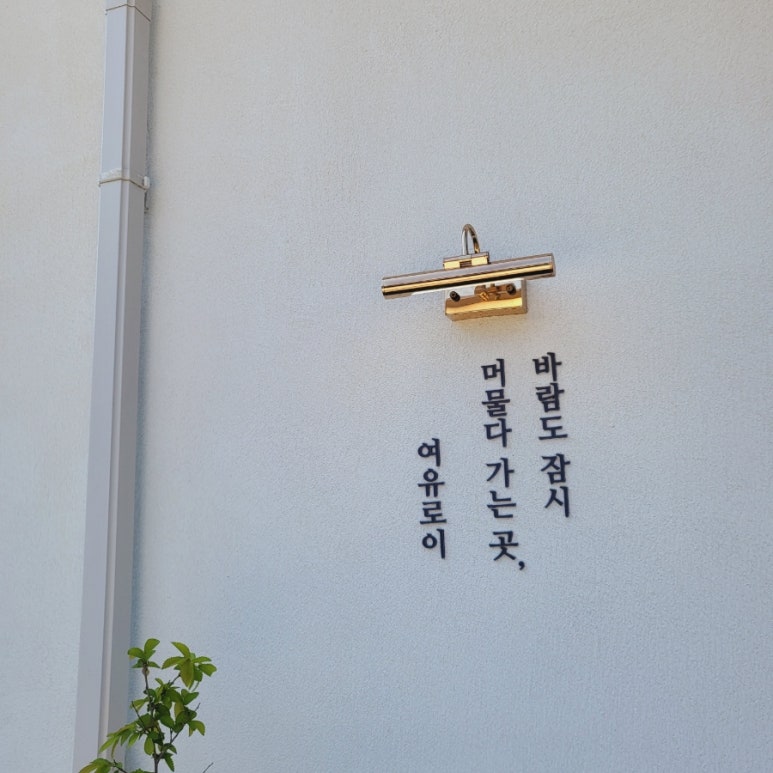 바람도 잠시
머물다 가는 곳,
여유로이